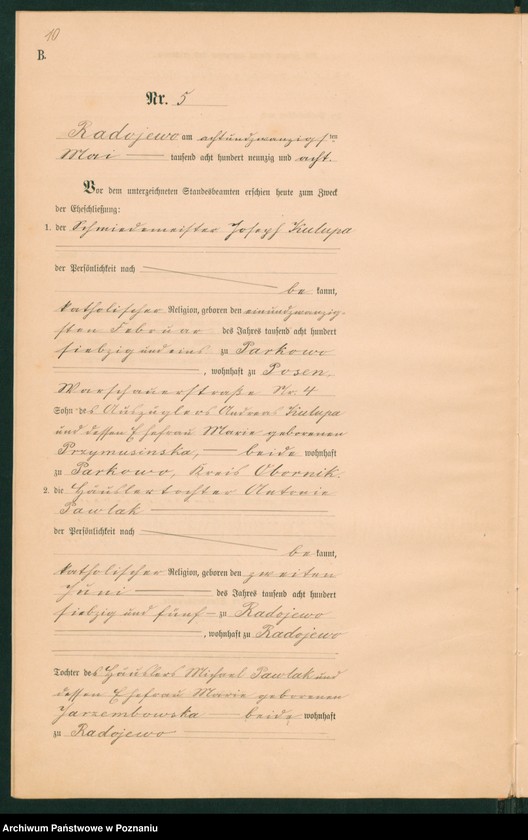 10
B.
Nr. 5
Radojewo am achtundzwanzigsten
Mai tausend acht hundert neunzig und acht.
Vor dem unterzeichneten Standesbeamten erschien heute zum Zweck
der Eheschließung:
1. der Schmiedemeister Joseph Kulupa
der Persönlichkeit nach
be kannt,
katholischer Religion, geboren den einundzwanzig-
sten Februar des Jahres tausend acht hundert
siebzig und eins zu Parkowo
, wohnhaft zu Posen,
Warschauerstraße Nr. 4
Sohn des Auszüglers Andreas Kulupa
und dessen Ehefrau Marie geborenen
Przymusinska, beide wohnhaft
zu Parkowo, Kreis Obornik.
2. die Häuslertochter Antonie
Pawlak
der Persönlichkeit nach
be kannt,
katholischer Religion, geboren den zweiten
Juni des Jahres tausend acht hundert
siebzig und fünf zu Radojewo
, wohnhaft zu Radojewo
Tochter des Häuslers Michael Pawlak und
dessen Ehefrau Marie geborenen
Jarzembowska beide wohnhaft
zu Radojewo
Archiwum Państwowe w Poznaniu